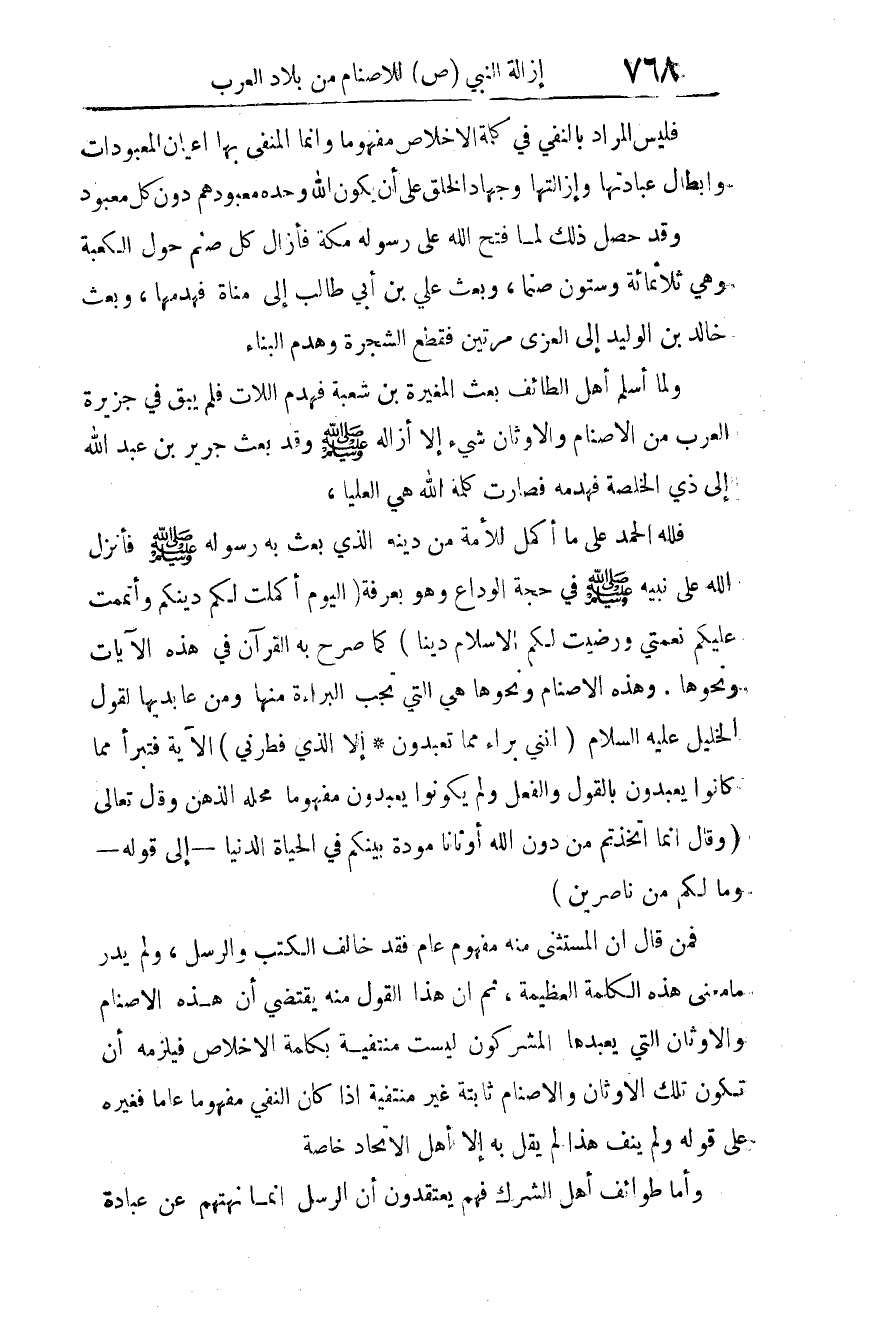 ٧٦٨ إزالة النبي (ص) للاصنام من بلاد العرب
فليس المراد بالنفي في كلمة الاخلاص مفهوما وانما المنفى بها اعيان المعبودات
وابطال عبادتها وإزالتها وجهاد الخلق على أن يكون الله وحده معبودهم دون كل معبود
وقد حصل ذلك لمـا فتح الله على رسوله مكة فأزال كل صنم حول الكعبة
وهي ثلاثمائة وستون صنما، وبعث علي بن أبي طالب إلى مناة فهدمها، وبعث
خالد بن الوليد إلى العزى مرتين فقطع الشجرة وهدم البناء
ولما أسلم أهل الطائف بعث المغيرة بن شعبة فهدم اللات فلم يبق في جزيرة
العرب من الاصنام والاوثان شيء إلا أزاله ﷺ وقد بعث جرير بن عبد الله
إلى ذي الخلصة فهدمه فصارت كلمة الله هي العليا،
فلله الحمد على ما أكمل للأمة من دينه الذي بعث به رسوله ﷺ فأنزل
الله على نبيه ﷺ في حجة الوداع وهو بعرفة (اليوم أكملت لكم دينكم وأتممت
عليكم نعمتي ورضيت لكم الاسلام دينا) كما صرح به القرآن في هذه الآيات
ونحوها. وهذه الاصنام ونحوها هي التي تجب البراءة منها ومن عابديها لقول
الخليل عليه السلام (انني براء مما تعبدون * إلا الذي فطرني) الآية فتبرأ مما
كانوا يعبدون بالقول والفعل ولم يكونوا يعبدون مفهوما محله الذهن وقال تعالى
(وقال انما اتخذتم من دون الله أوثانا مودة بينكم في الحياة الدنيا —إلى قوله—
وما لكم من ناصرين)
فمن قال ان المستثنى منه مفهوم عام فقد خالف الكتب والرسل، ولم يدر
مامعنى هذه الكلمة العظيمة، ثم ان هذا القول منه يقتضي أن هـذه الاصنام
والاوثان التي يعبدها المشركون ليست منتفيـة بكلمة الاخلاص فيلزمه أن
تكون تلك الاوثان والاصنام ثابتة غير منتفية اذا كان النفي مفهوما عاما فغيره
على قوله ولم ينف هذا لم يقل به إلا أهل الاتحاد خاصة
وأما طوائف أهل الشرك فهم يعتقدون أن الرسل انمـا نهتهم عن عبادة